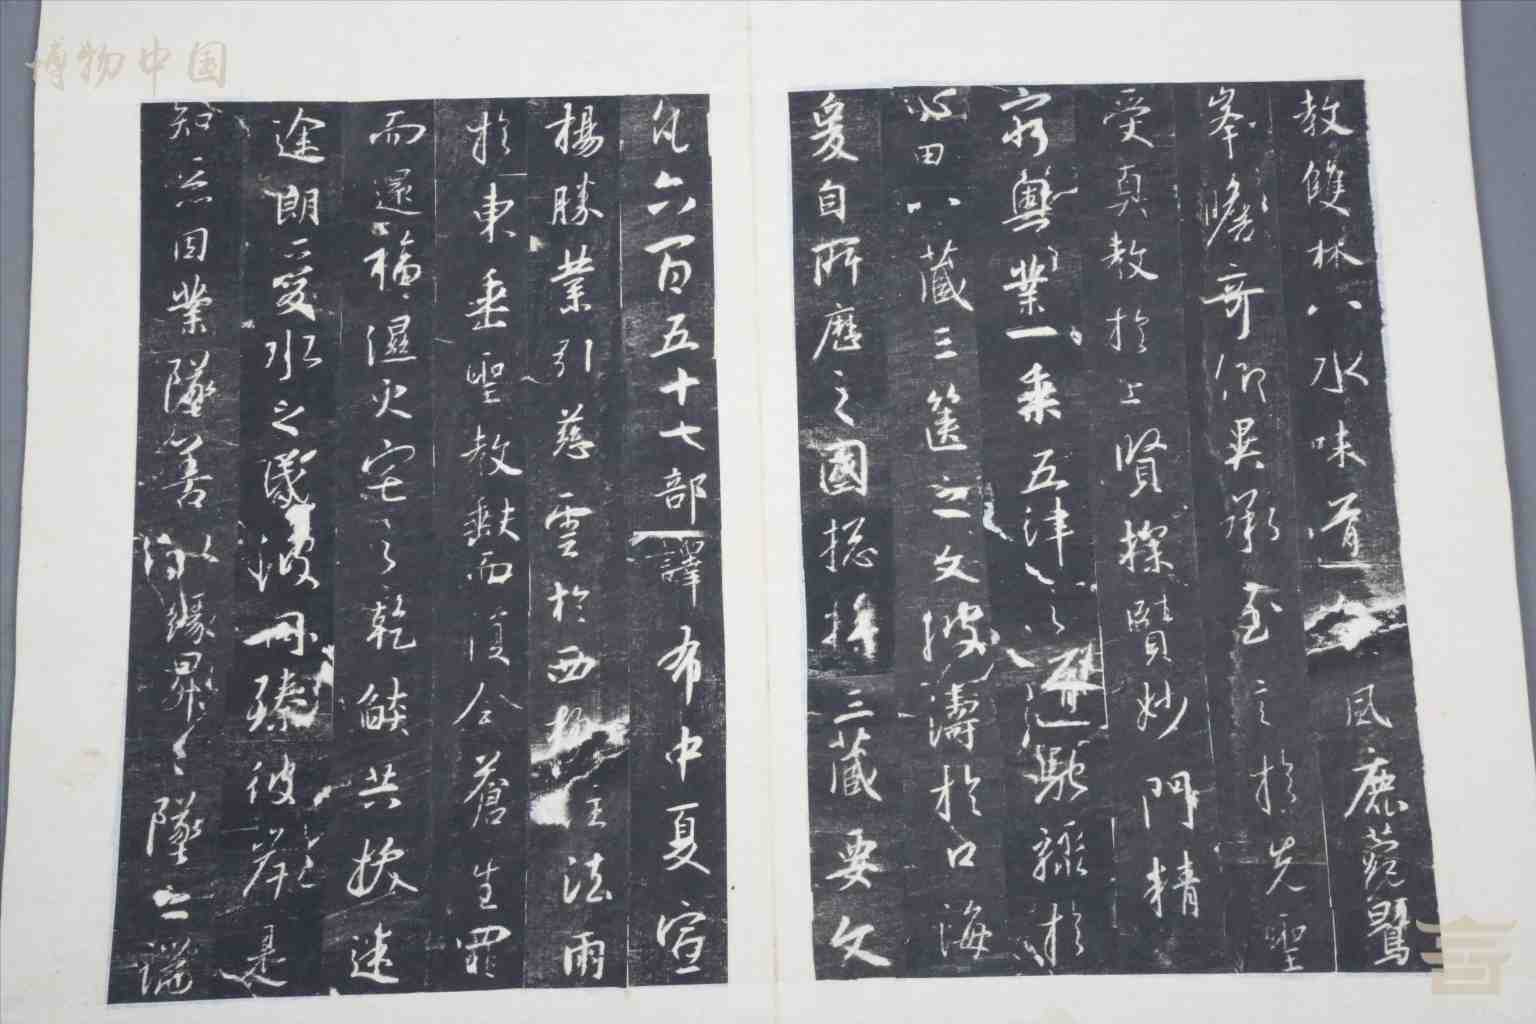 博物中国
教雙林八水味道餐風鹿菀鷲
峯瞻奇仰異承至言於先聖
受真教於上賢探賾妙門精
窮奧業一乘五律之道馳驟於
心田八藏三篋之文波濤於口海
爰自所歷之國揔將三藏要文
凡六百五十七部譯布中夏宣
揚勝業引慈雲於西極注法雨
於東垂聖教缺而復全蒼生罪
而還福濕火宅之乾燄共拔迷
途朗愛水之昏波同臻彼岸是
知惡因業墜善以緣昇々墜之端